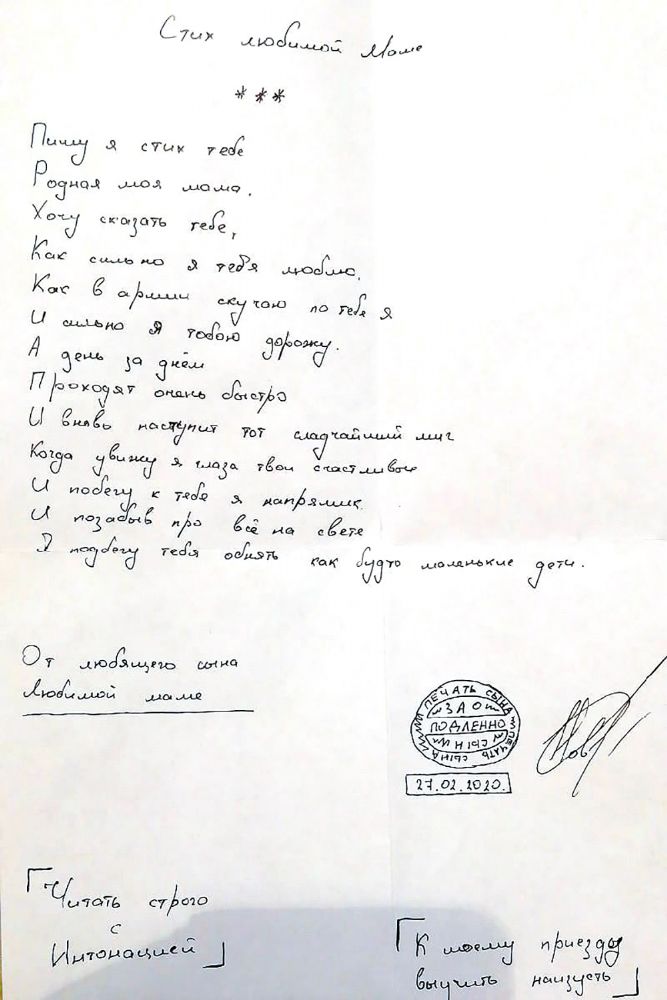 Стих любимой Маме
***
Пишу я стих тебе
Родная моя мама.
Хочу сказать тебе,
Как сильно я тебя люблю.
Как в армии скучаю по тебе я
И сильно я тобою дорожу.
А день за днём
Проходят очень быстро
И вновь наступит тот сладчайший миг
Когда увижу я глаза твои счастливые
И побегу к тебе я напрямик
И позабыв про всё на свете
Я подбегу тебя обнять как будто маленькие дети.
От любящего сына
Любимой маме
ПЕЧАТЬ СЫНА
ПЕЧАТЬ СЫНА
ЗАО
ПОДЛЕННО
СЫН
27.02.2020.
Читать строго
с
Интонацией
К моему приезду
выучить наизусть